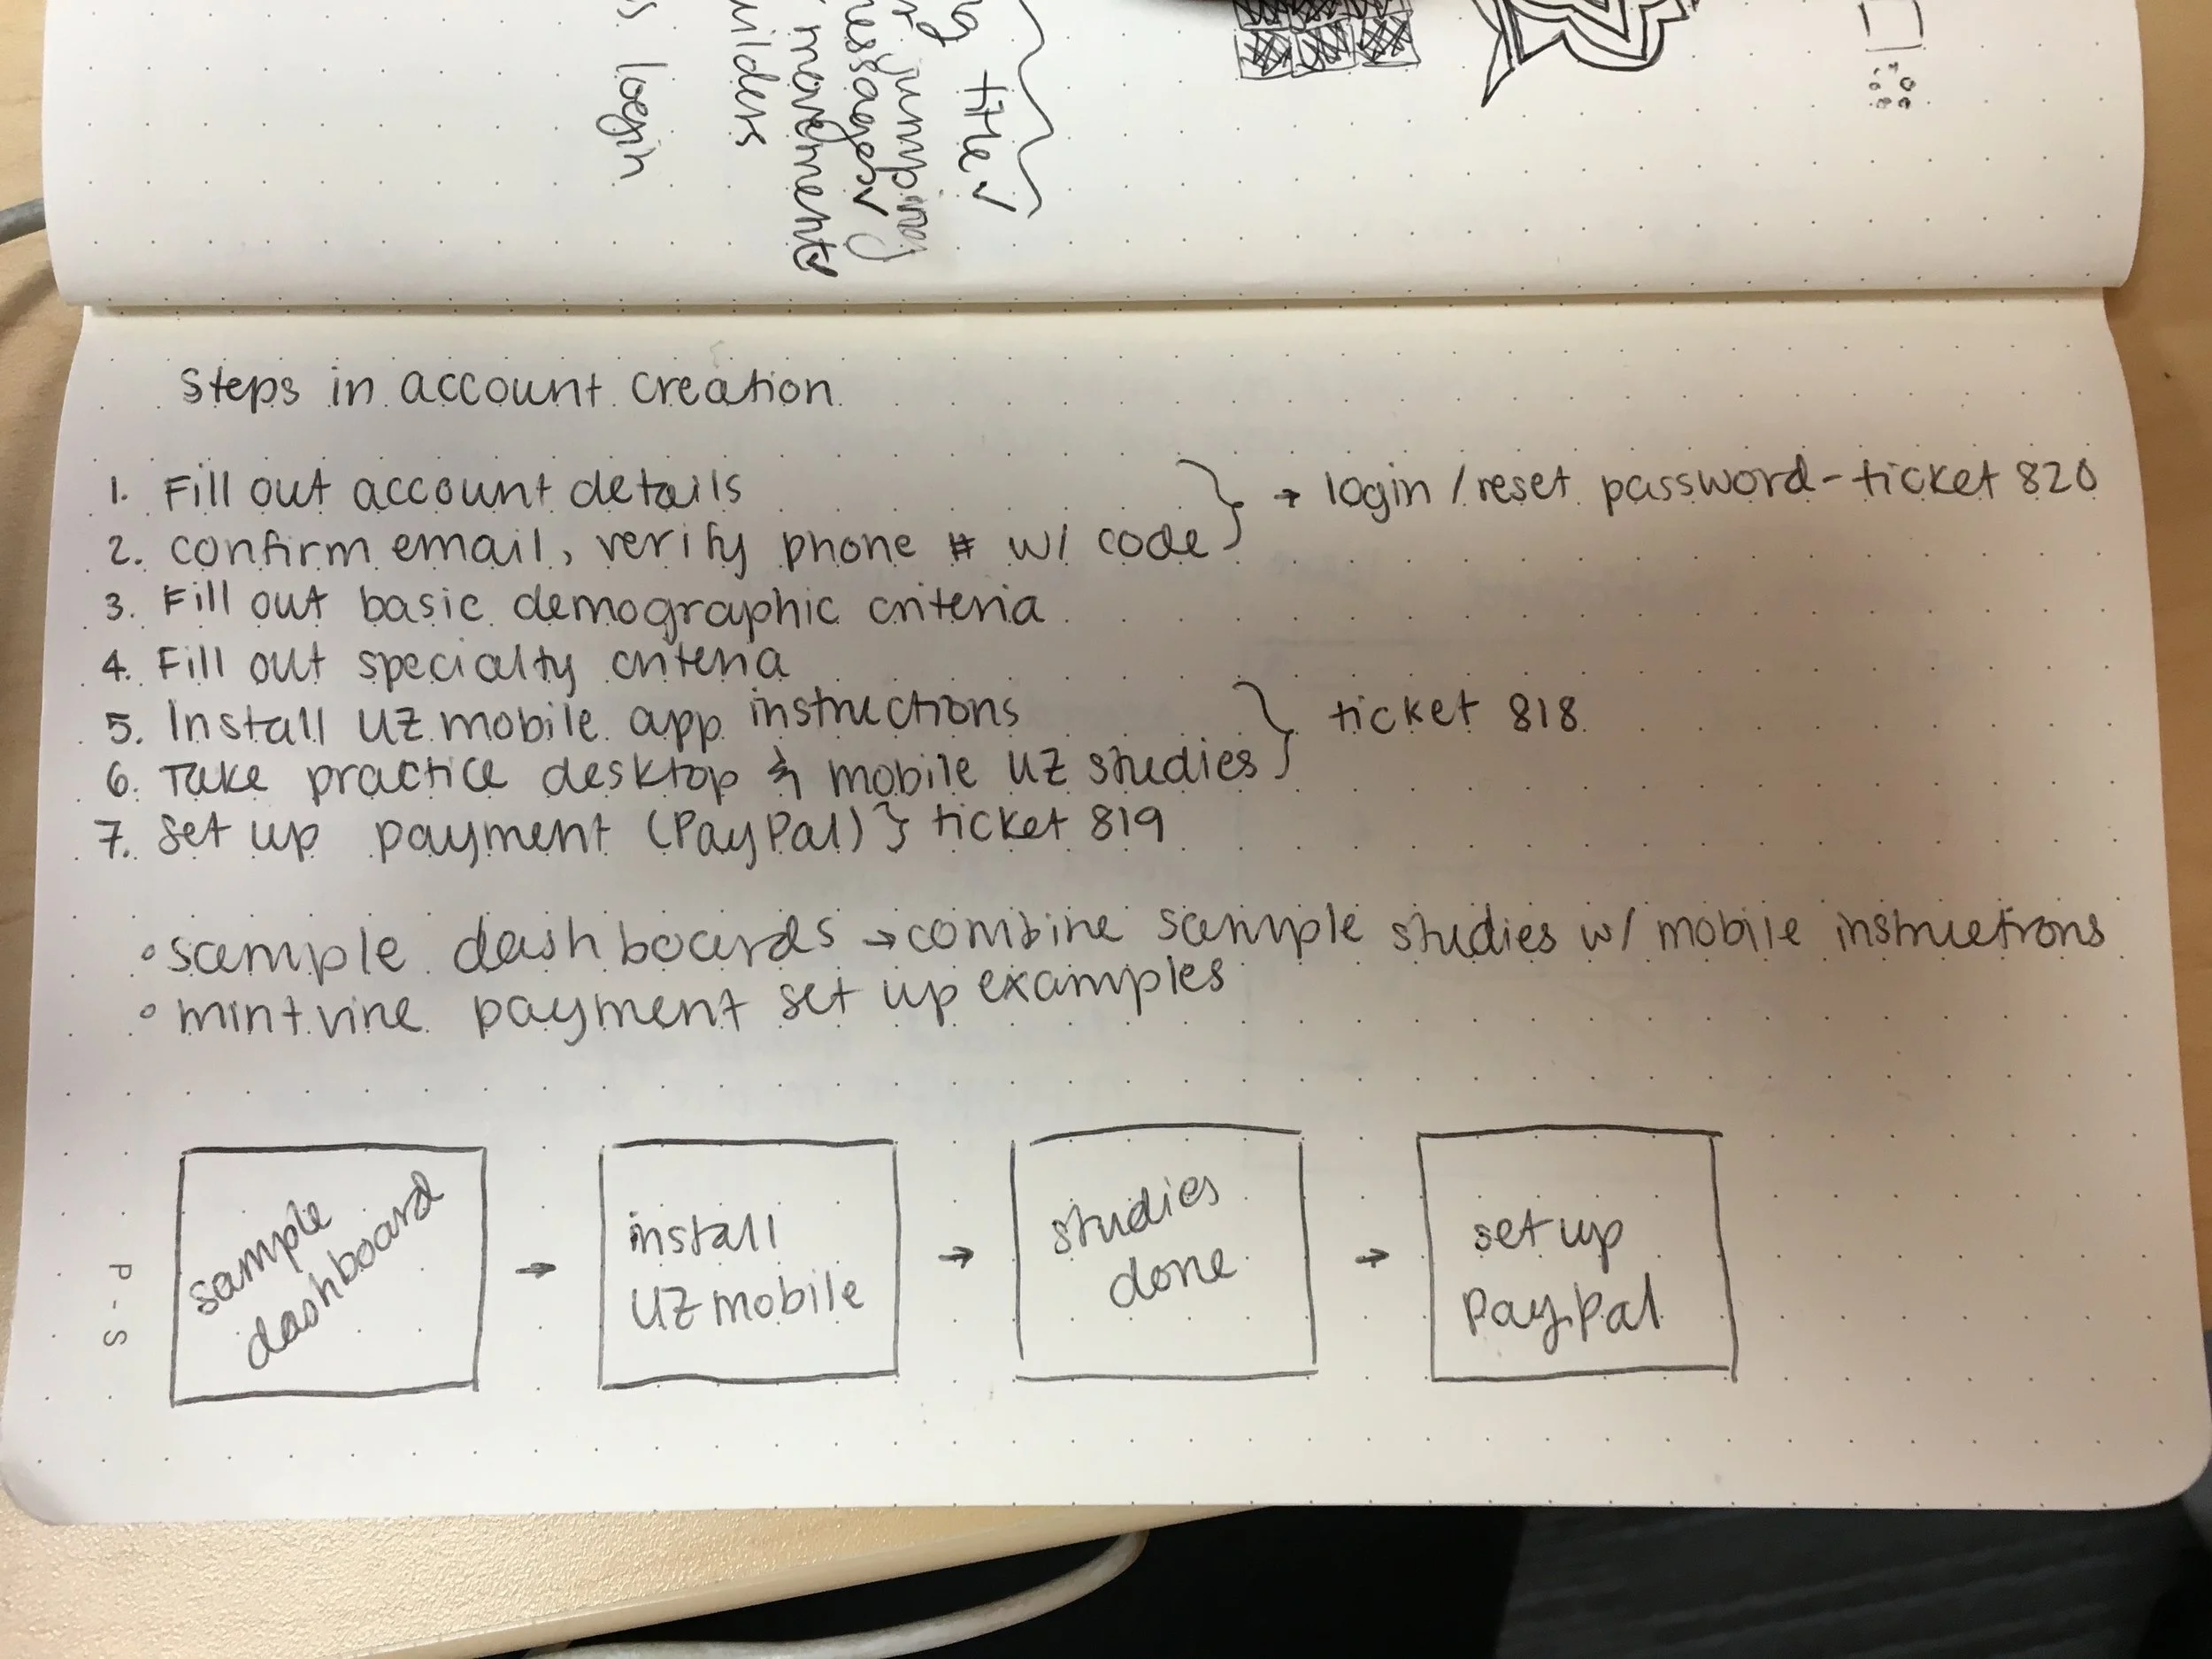 login
uilders
movements
messages
jumping
title
Steps in account creation
1. Fill out account details } → login / reset password - ticket 820
2. confirm email, verify phone # w/ code
3. Fill out basic demographic criteria
4. Fill out specialty criteria
5. Install UZ mobile app instructions } ticket 818
6. Take practice desktop & mobile UZ studies
7. Set up payment (PayPal) } ticket 819
• sample dashboards → combine sample studies w/ mobile instructions
• mintvine payment set up examples
sample
dashboard
→
install
UZ mobile
→
studies
done
→
set up
PayPal
P - S